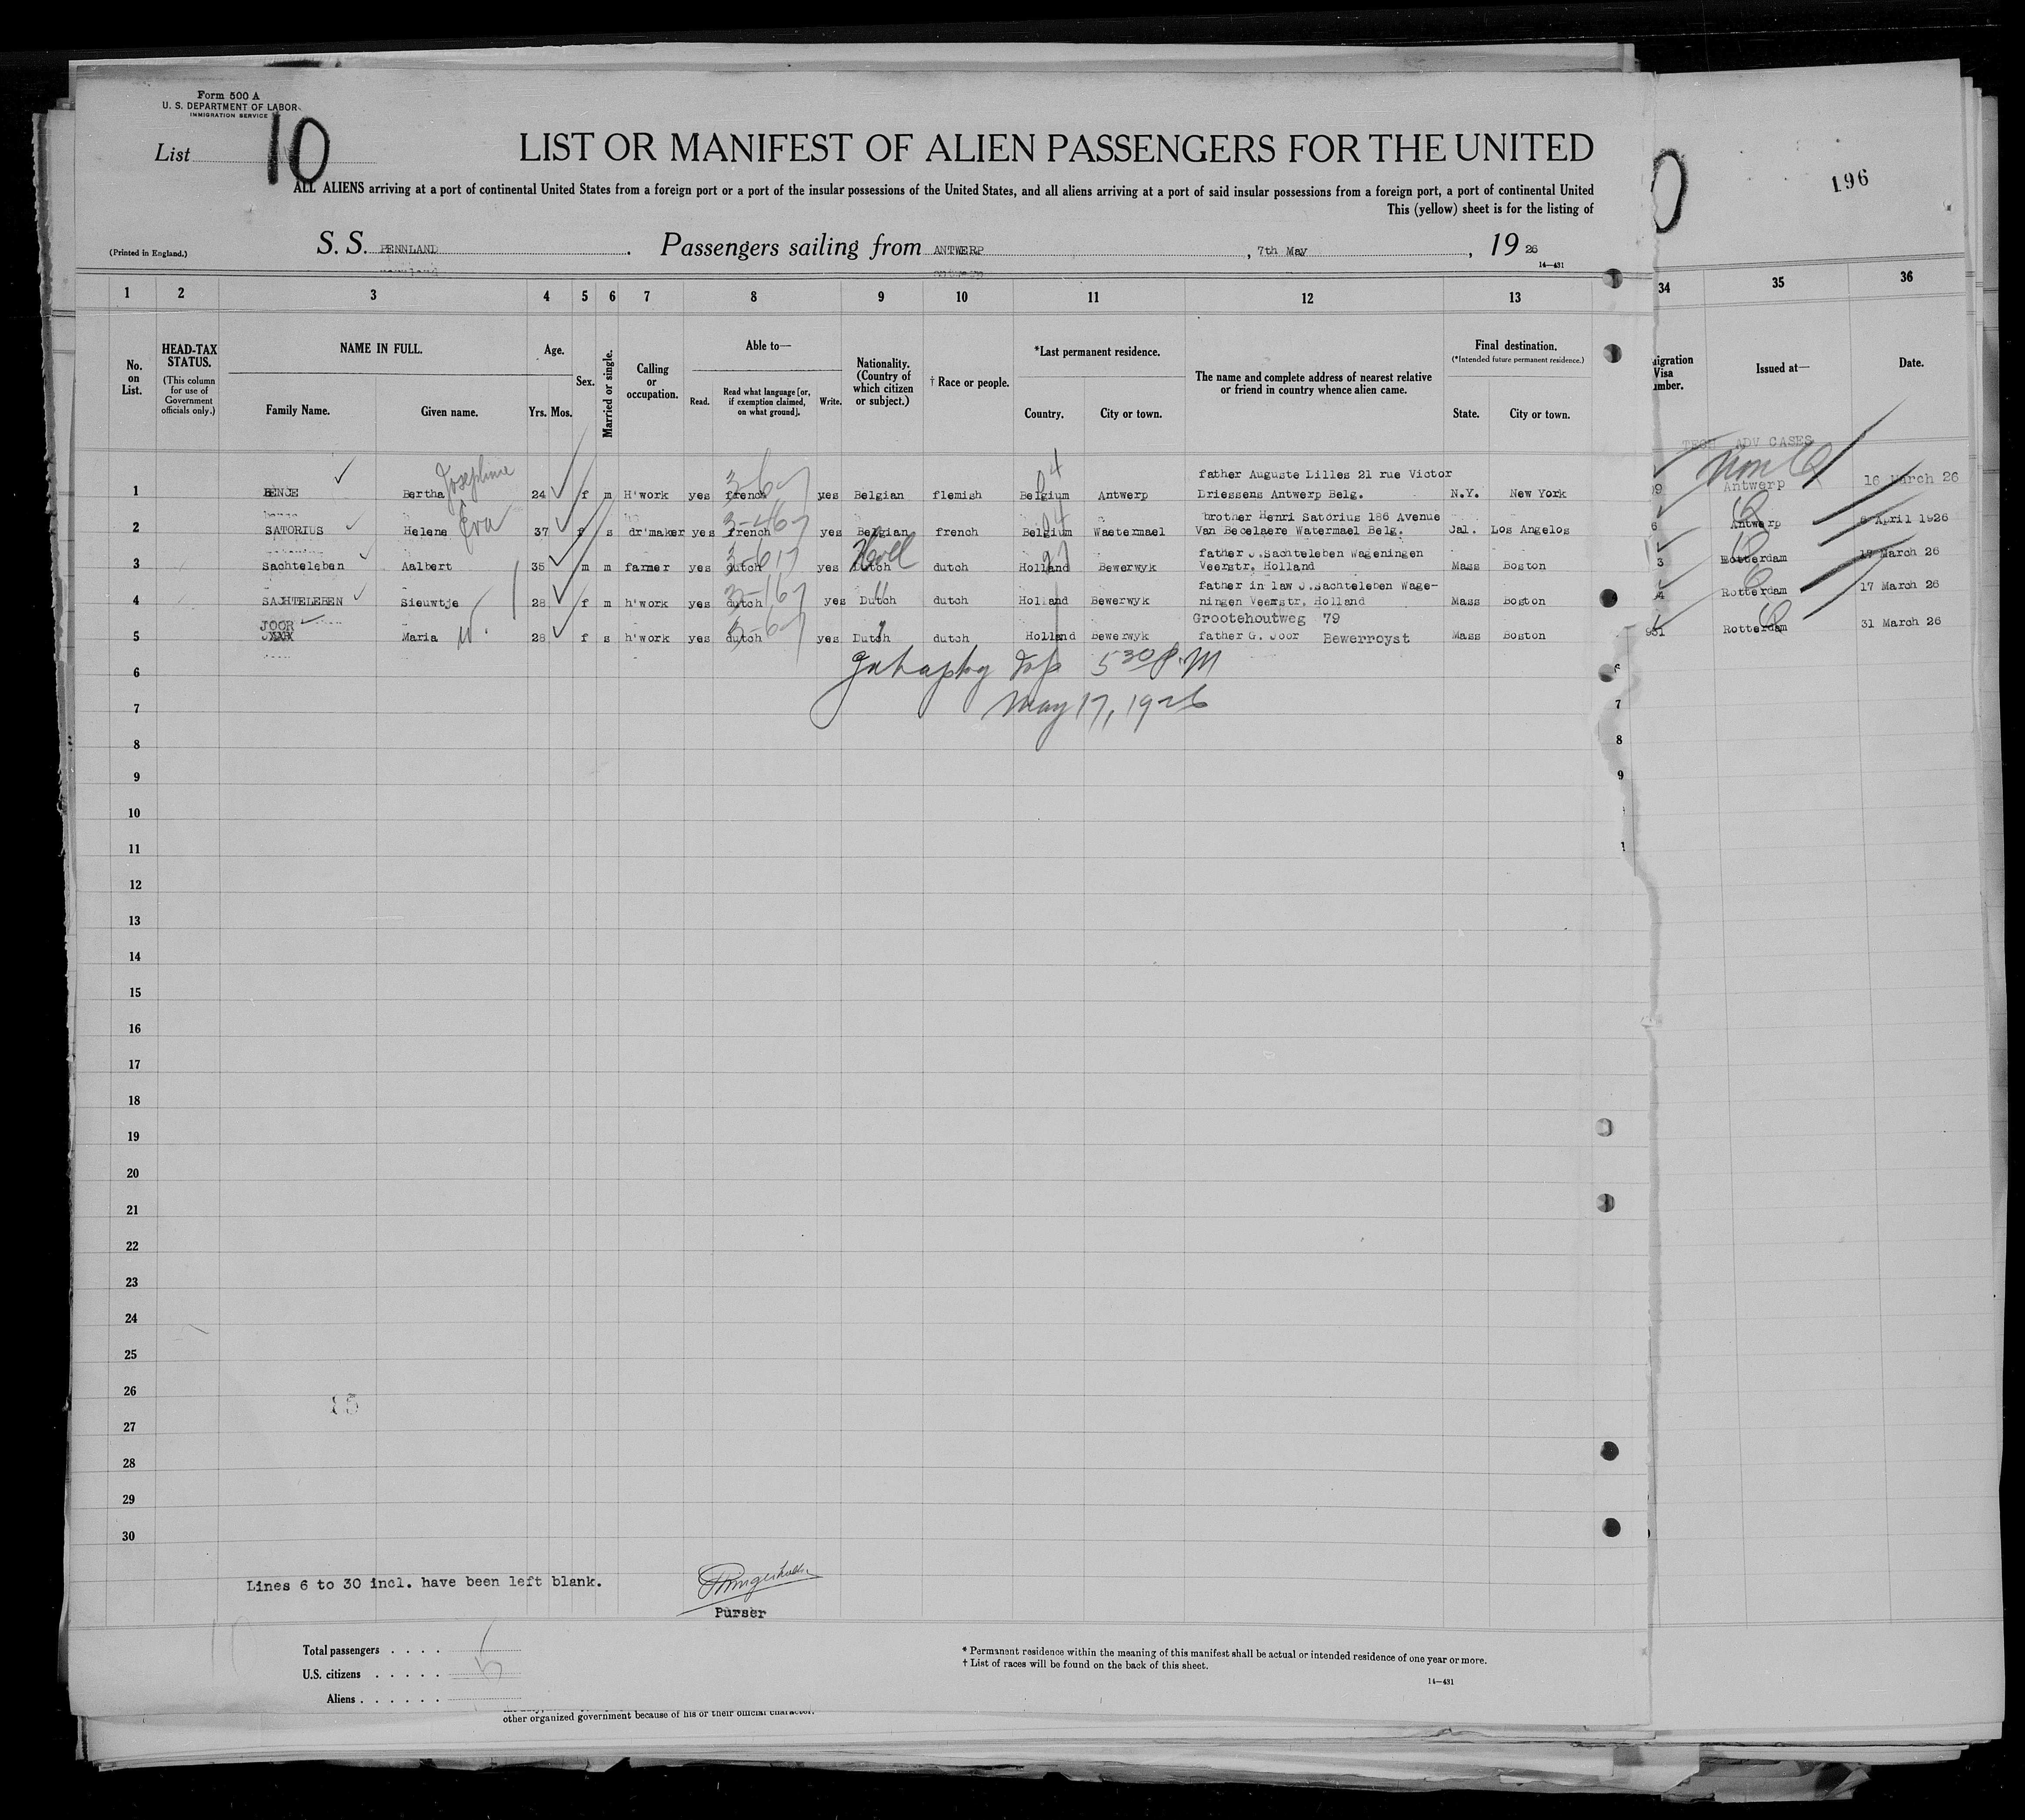 Form 500 A
U. S. DEPARTMENT OF LABOR
IMMIGRATION SERVICE
List 10
LIST OR MANIFEST OF ALIEN PASSENGERS FOR THE UNITED
196
ALL ALIENS arriving at a port of continental United States from a foreign port or a port of the insular possessions of the United States, and all aliens arriving at a port of said insular possessions from a foreign port, a port of continental United
This (yellow) sheet is for the listing of
(Printed in England.)
S. S. PENNLAND. Passengers sailing from ANTWERP, 7th May, 19 26
14—431
1 2 3 4 5 6 7 8 9 10 11 12 13 34 35 36
No. on List.
HEAD-TAX STATUS.
(This column for use of Government officials only.)
NAME IN FULL.
Family Name. Given name.
Age.
Yrs. Mos.
Sex.
Married or single.
Calling or occupation.
Able to—
Read. Read what language [or, if exemption claimed, on what ground]. Write.
Nationality. (Country of which citizen or subject.)
† Race or people.
*Last permanent residence.
Country. City or town.
The name and complete address of nearest relative or friend in country whence alien came.
Final destination.
(*Intended future permanent residence.)
State. City or town.
Issued at—
Date.
TECH ADV CASES
father Auguste Lilles 21 rue Victor
1 HENCE Bertha Josephine 24 f m H'work yes french yes Belgian flemish Belgium Antwerp Driessens Antwerp Belg. N.Y. New York Antwerp 16 March 26
brother Henri Satorius 186 Avenue
2 SATORIUS Helene Eva 37 f s dr'maker yes french yes Belgian french Belgium Waetermael Van Becelaere Watermael Belg. Jal. Los Angelos Antwerp 6 April 1926
father J.Sachteleben Wageningen
3 Sachteleben Aalbert 35 m m farmer yes dutch yes Dutch Holl dutch Holland Bewerwyk Veerstr. Holland Mass Boston Rotterdam 17 March 26
father in law J.Sachteleben Wage-
4 SACHTELEBEN Sieuwtje 28 f m h'work yes dutch yes Dutch dutch Holland Bewerwyk ningen Veerstr. Holland Mass Boston Rotterdam 17 March 26
JOOR Grootehoutweg 79
5 Maria W. 28 f s h'work yes dutch yes Dutch dutch Holland Bewerwyk father G. Joor Bewerroyst Mass Boston 931 Rotterdam 31 March 26
6 5 30 P.M
7 May 17, 1926
8
9
10
11
12
13
14
15
16
17
18
19
20
21
22
23
24
25
26
27
28
29
30
Lines 6 to 30 incl. have been left blank.
Purser
Total passengers . . . .
U.S. citizens . . . . .
Aliens . . . . . .
* Permanent residence within the meaning of this manifest shall be actual or intended residence of one year or more.
† List of races will be found on the back of this sheet.
14—431
other organized government because of his or their official character.